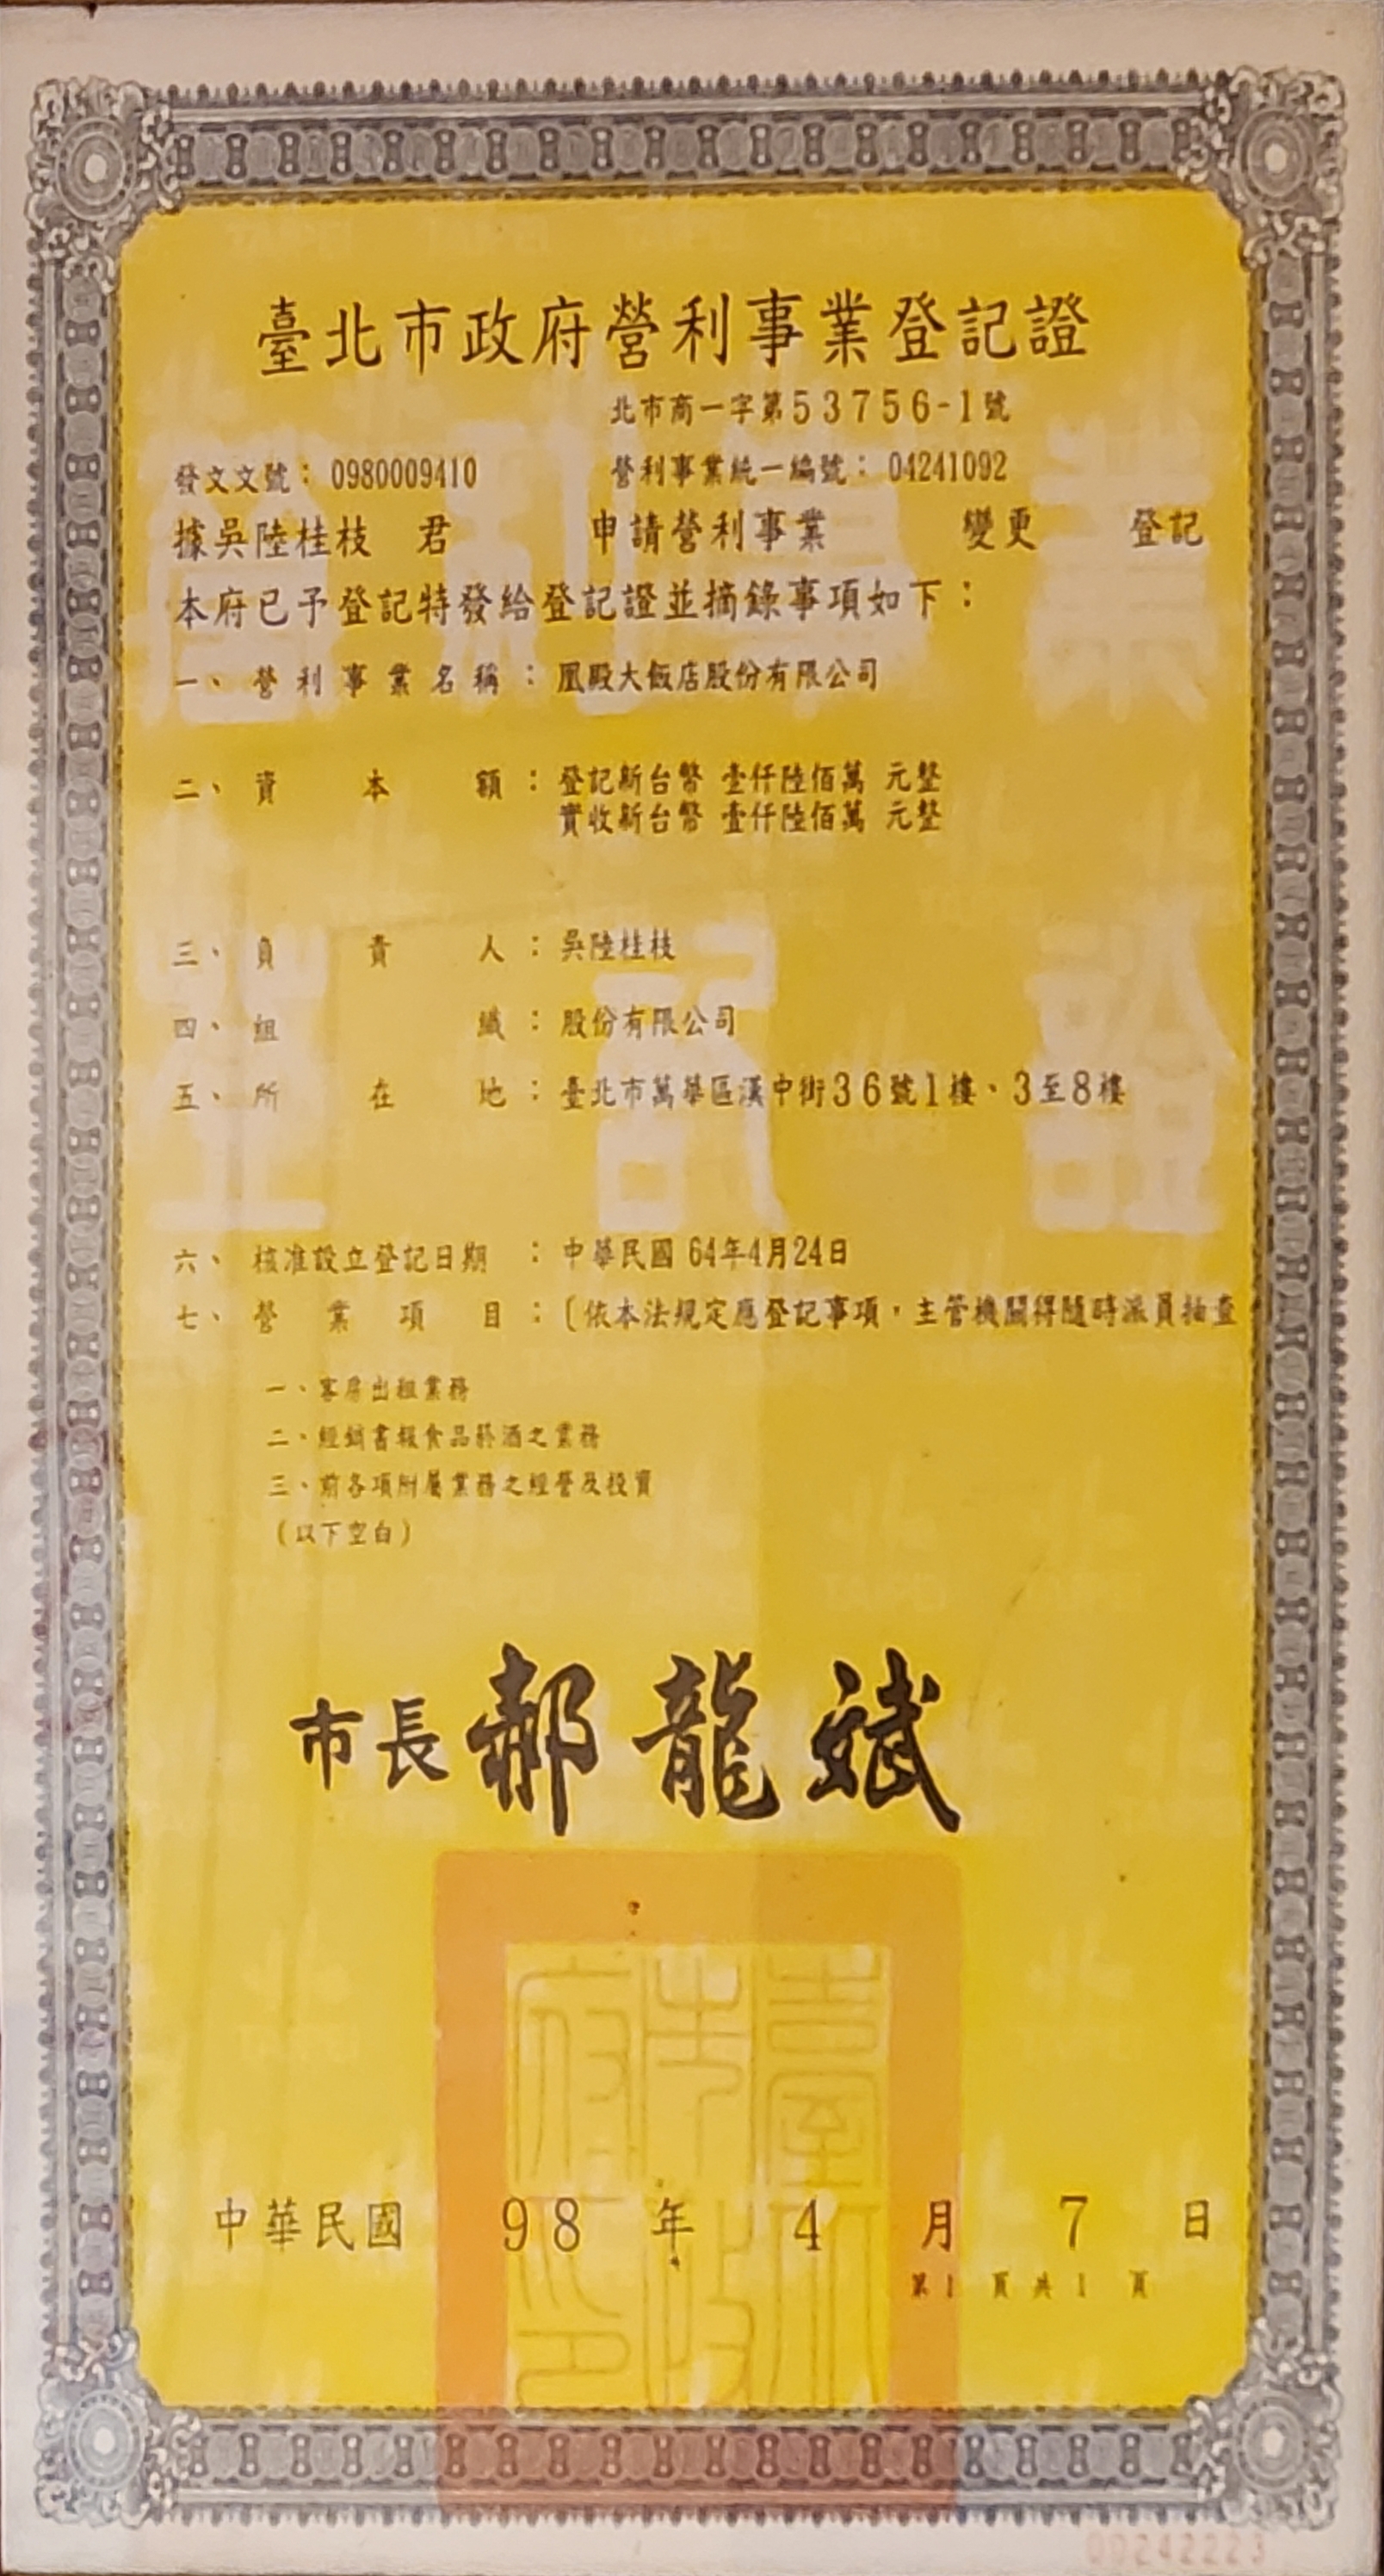 臺北市政府營利事業登記證
北市商一字第53756-1號
發文文號：0980009410 營利事業統一編號：04241092
據吳陸桂枝 君 申請營利事業 變更 登記
本府已予登記特發給登記證並摘錄事項如下：
一、營利事業名稱：凰殿大飯店股份有限公司
二、資本額：登記新台幣 壹仟陸佰萬 元整
實收新台幣 壹仟陸佰萬 元整
三、負責人：吳陸桂枝
四、組織：股份有限公司
五、所在地：臺北市萬華區漢中街36號1樓、3至8樓
六、核准設立登記日期：中華民國 64年4月24日
七、營業項目：〔依本法規定應登記事項，主管機關得隨時派員抽查
一、客房出租業務
二、經銷書報食品菸酒之業務
三、前各項附屬業務之經營及投資
（以下空白）
市長 郝龍斌
臺北市政府印
中華民國 98 年 4 月 7 日
第1頁共1頁
00242223